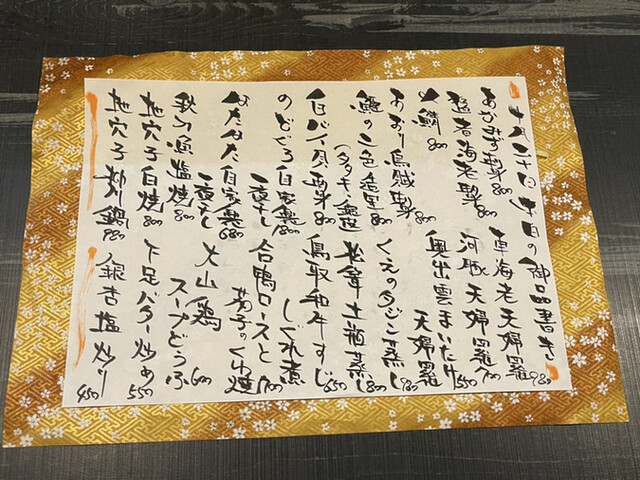 十月二十日 本日の御品書き
あかみず刺身 800
猛者海老刺 800
〆鯖 800
あおり烏賊刺 800
鰹の二色造里 800
(タタキ、銀皮)
白バイ貝刺 800
のどぐろ自家製一夜干し 1800
はたはた自家製一夜干し 680
秋刀魚塩焼 800
地穴子白焼 800
地穴子柳川鍋 980
車海老天婦羅 980
河豚天婦羅 700
奥出雲まいたけ天婦羅 550
くえのタジン蒸し 980
松茸土瓶蒸し 800
鳥取和牛すじしぐれ煮 650
合鴨ロースと茄子のくわ焼 700
大山鶏スープどうふ 600
下足バター炒め 550
銀杏塩炒り 450